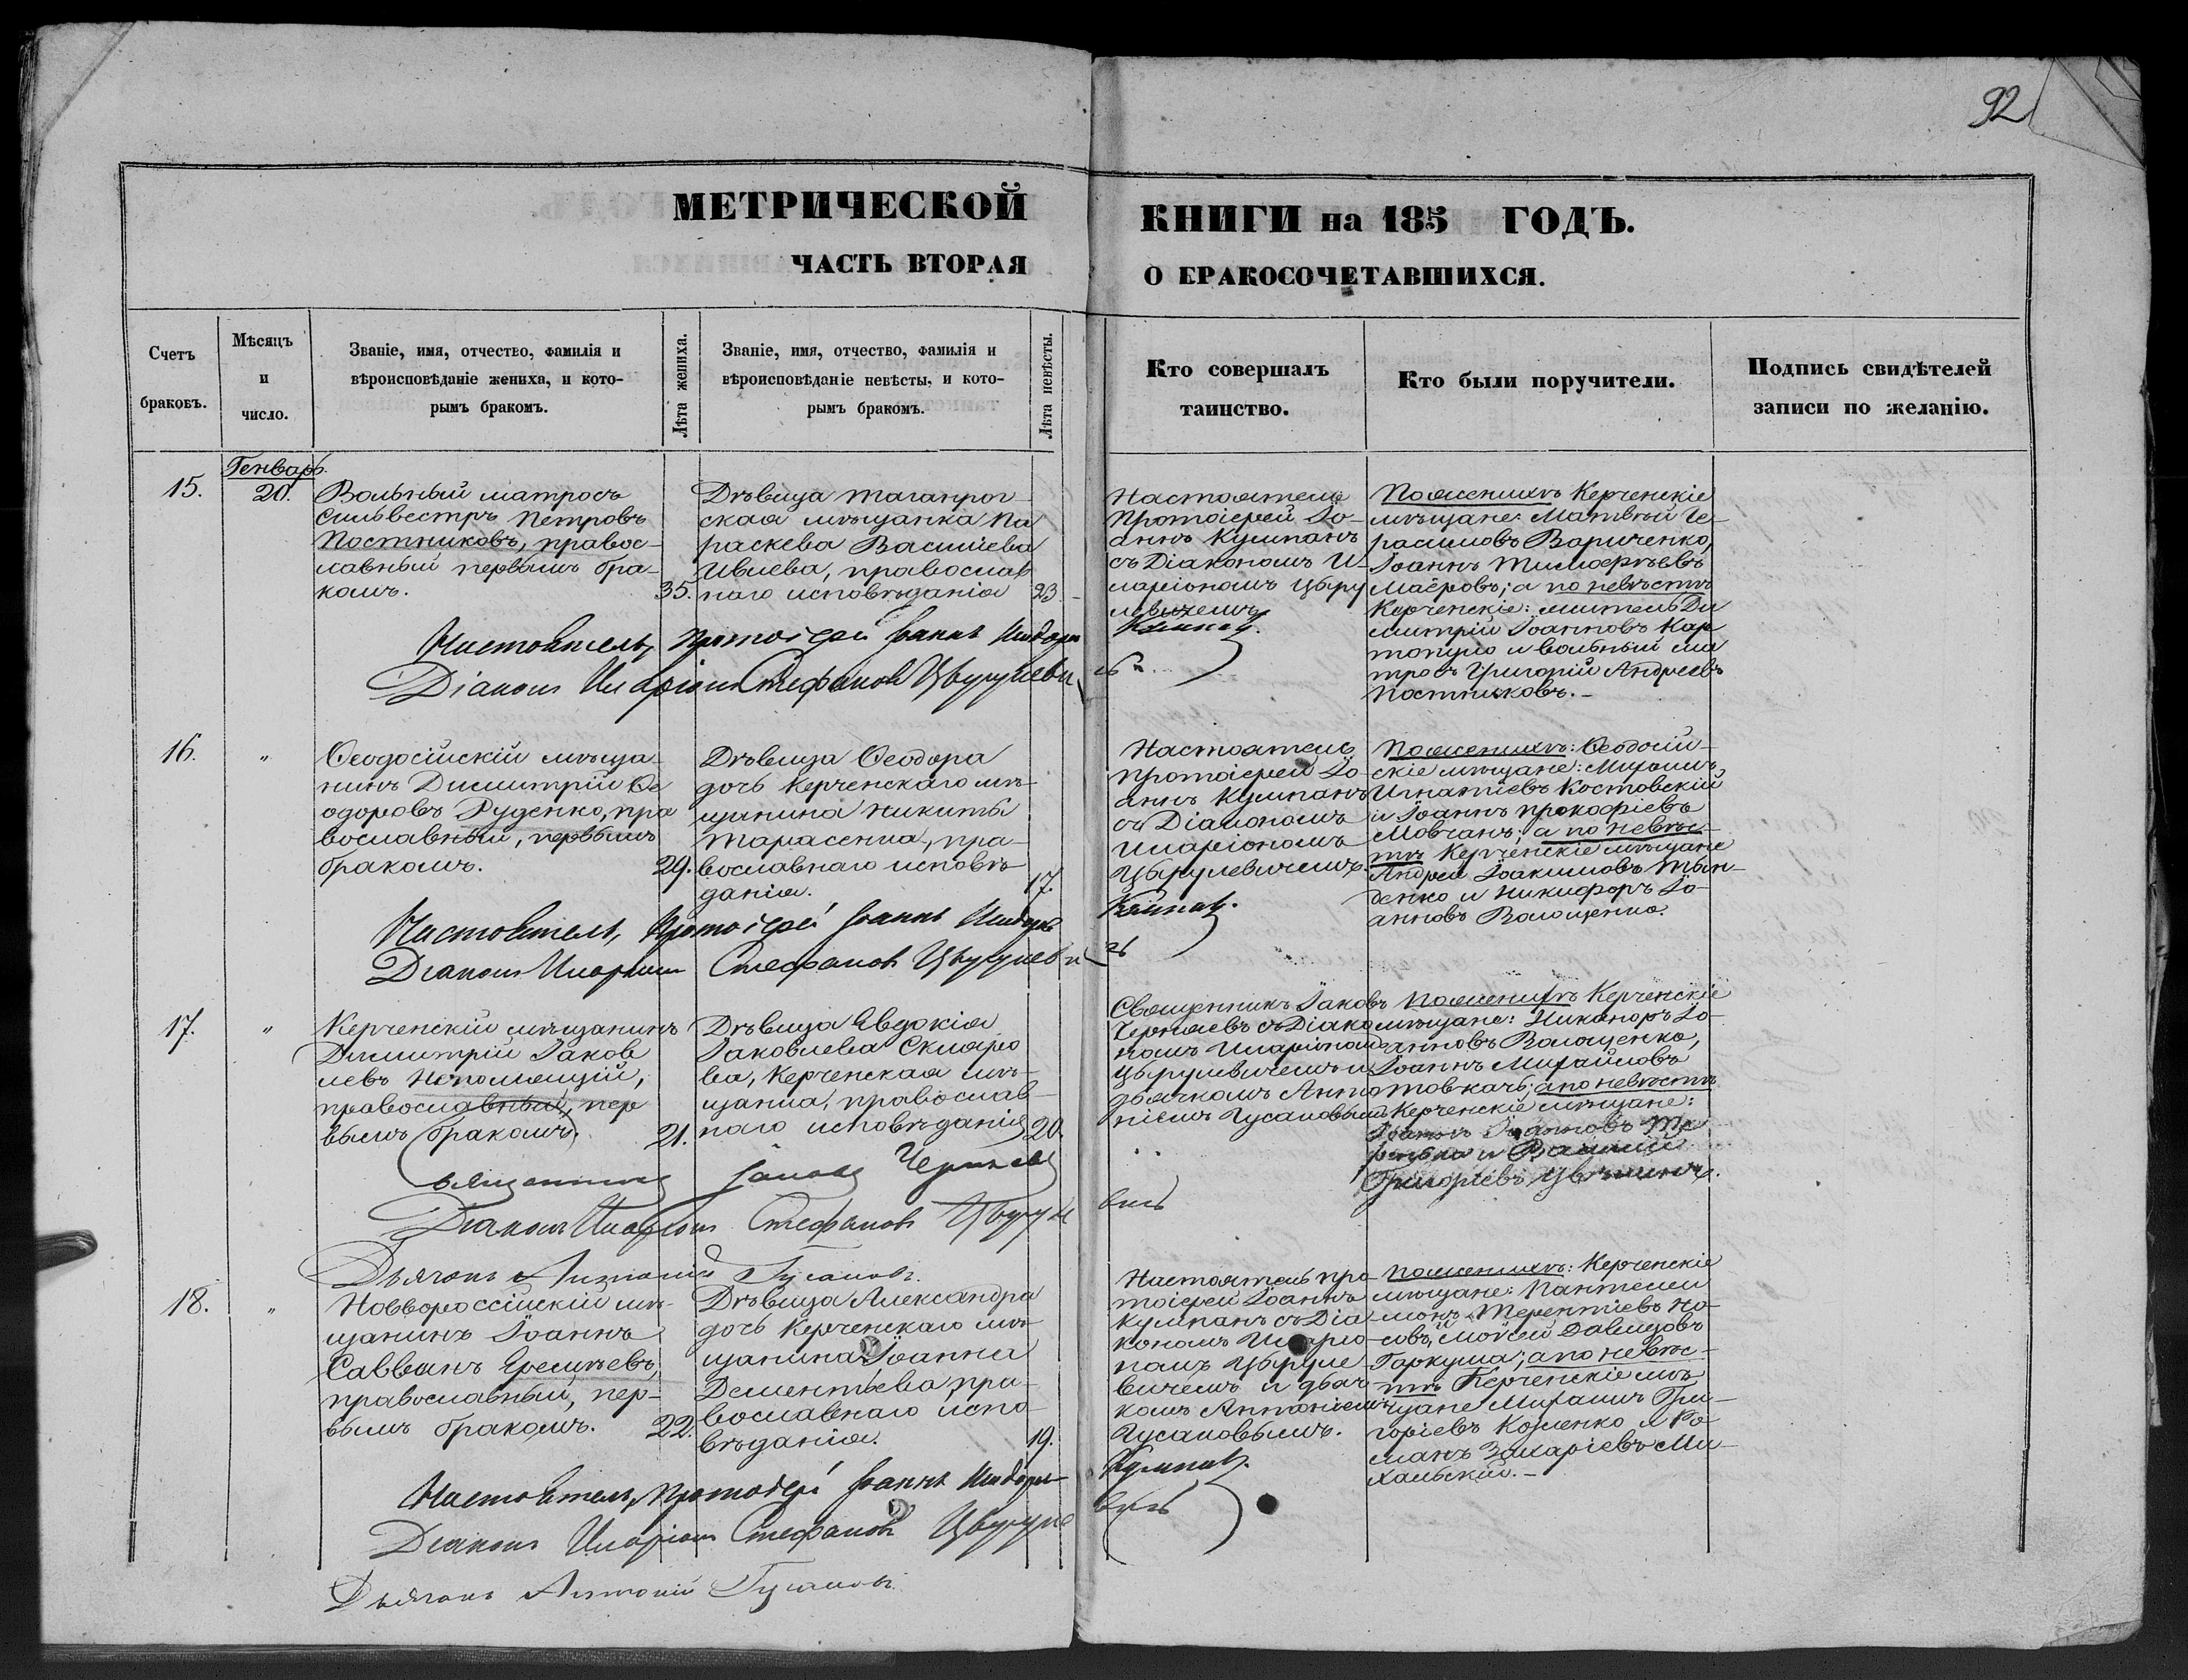 92
МЕТРИЧЕСКОЙ КНИГИ на 185 ГОДЪ.
ЧАСТЬ ВТОРАЯ О БРАКОСОЧЕТАВШИХСЯ.
Счетъ
браковъ.
Мѣсяцъ
и
число.
Званіе, имя, отчество, фамилія и
вѣроисповѣданіе жениха, и кото-
рымъ бракомъ.
Лѣта жениха.
Званіе, имя, отчество, фамилія и
вѣроисповѣданіе невѣсты, и кото-
рымъ бракомъ.
Лѣта невѣсты.
Кто совершалъ
таинство.
Кто были поручители.
Подпись свидѣтелей
записи по желанію.
15.
Генварь
20.
Вольный матросъ
Сильвестръ Петровъ
Постниковъ, правос-
лавный первымъ бра-
комъ.
35.
Дѣвица таганрог-
ская мѣщанка Па
раскева Василіева
Ивлева, православ
наго исповѣданія
23
Настоятель
Протоіерей Іо-
аннъ Кумпанъ
съ Діакономъ И-
ларіономъ Цыру
левичемъ
По женихѣ Керченскіе
мѣщане: Матвѣй Ге-
расимовъ Вариченко,
Іоаннъ Тимофѣевъ
Маёровъ; а по невѣстѣ
Керченскіе: житель Ди
митрій Іоанновъ Кар
топуло и вольный ма
тросъ Григорій Андреевъ
Постниковъ.-
Настоятель, протоіерей Іоаннъ
Діаконъ Иларіонъ Стефановъ Цырулеви
16.
"
Ѳеодосійскій мѣща-
нинъ Димитрій Ѳе
одоровъ Руденко, пра
вославный, первымъ
бракомъ.
29.
Дѣвица Ѳеодора
дочь Керченскаго мѣ-
щанина Никиты
Тарасенка, пра-
вославнаго исповѣ-
данія.
17.
Настоятель
протоіерей Іо-
аннъ Кумпанъ
съ Діакономъ
Иларіономъ
Цырулевичемъ.
По женихѣ: Ѳеодосій-
скіе мѣщане: Михаилъ
Игнатіевъ Костовскій
и Іоаннъ Прокофіевъ
Мовчанъ; а по невѣс-
тѣ Керченскіе мѣщане
Андрей Іоакимовъ Тын-
денко и Никифоръ Іо-
анновъ Волощенко.
Настоятель, Протоіерей Іоаннъ
Діаконъ Иларіонъ Стефановъ Цырулеви
17.
"
Керченскій мѣщанинъ
Димитрій Іаков
левъ Непомнящій,
православный, пер
вымъ бракомъ.
21.
Дѣвица Евдокія
Іаковлева Скляро
ва, Керченская мѣ-
щанка, православ-
наго исповѣданія
20.
Священникъ Іаковъ
Черняевъ съ Діако
номъ Иларіономъ
Цырулевичемъ и
дьячкомъ Анто
ніемъ Гусаковымъ
По женихѣ Керченскіе
мѣщане: Никаноръ Іо-
анновъ Волощенко,
Іоаннъ Михайловъ
Товкачъ; а по невѣстѣ
Керченскіе мѣщане:
Григоріевъ
Священникъ Іаковъ Черняевъ
Діаконъ Иларіонъ Стефановъ Цырулевичь
Дьячокъ Антоній Гусаковъ.
18.
"
Новороссійскій мѣ-
щанинъ Іоаннъ
Саввинъ Еремѣевъ,
православный, пер-
вымъ бракомъ.
22.
Дѣвица Александра
дочь Керченскаго мѣ-
щанина Іоанна
Дементьева, пра-
вославнаго испо-
вѣданія.
19.
Настоятель про-
тоіерей Іоаннъ
Кумпанъ съ Діа-
кономъ Иларіо-
номъ Цыруле-
вичемъ и дьяч-
комъ Антоніемъ
Гусаковымъ.
По женихѣ: Керченскіе
мѣщане: Пантелей
монъ Терентіевъ Но-
совъ, Моѵсей Давидовъ
Гаркуша; а по невѣс-
тѣ Керченскіе мѣ
щане Михаилъ Гри-
горіевъ Козленко и Ро-
манъ Захаріевъ Ми-
хальскій.-
Настоятель, Протоіерей Іоаннъ
Діаконъ Иларіонъ Стефановъ Цырулевичь
Дьячокъ Антоній Гусаковъ.